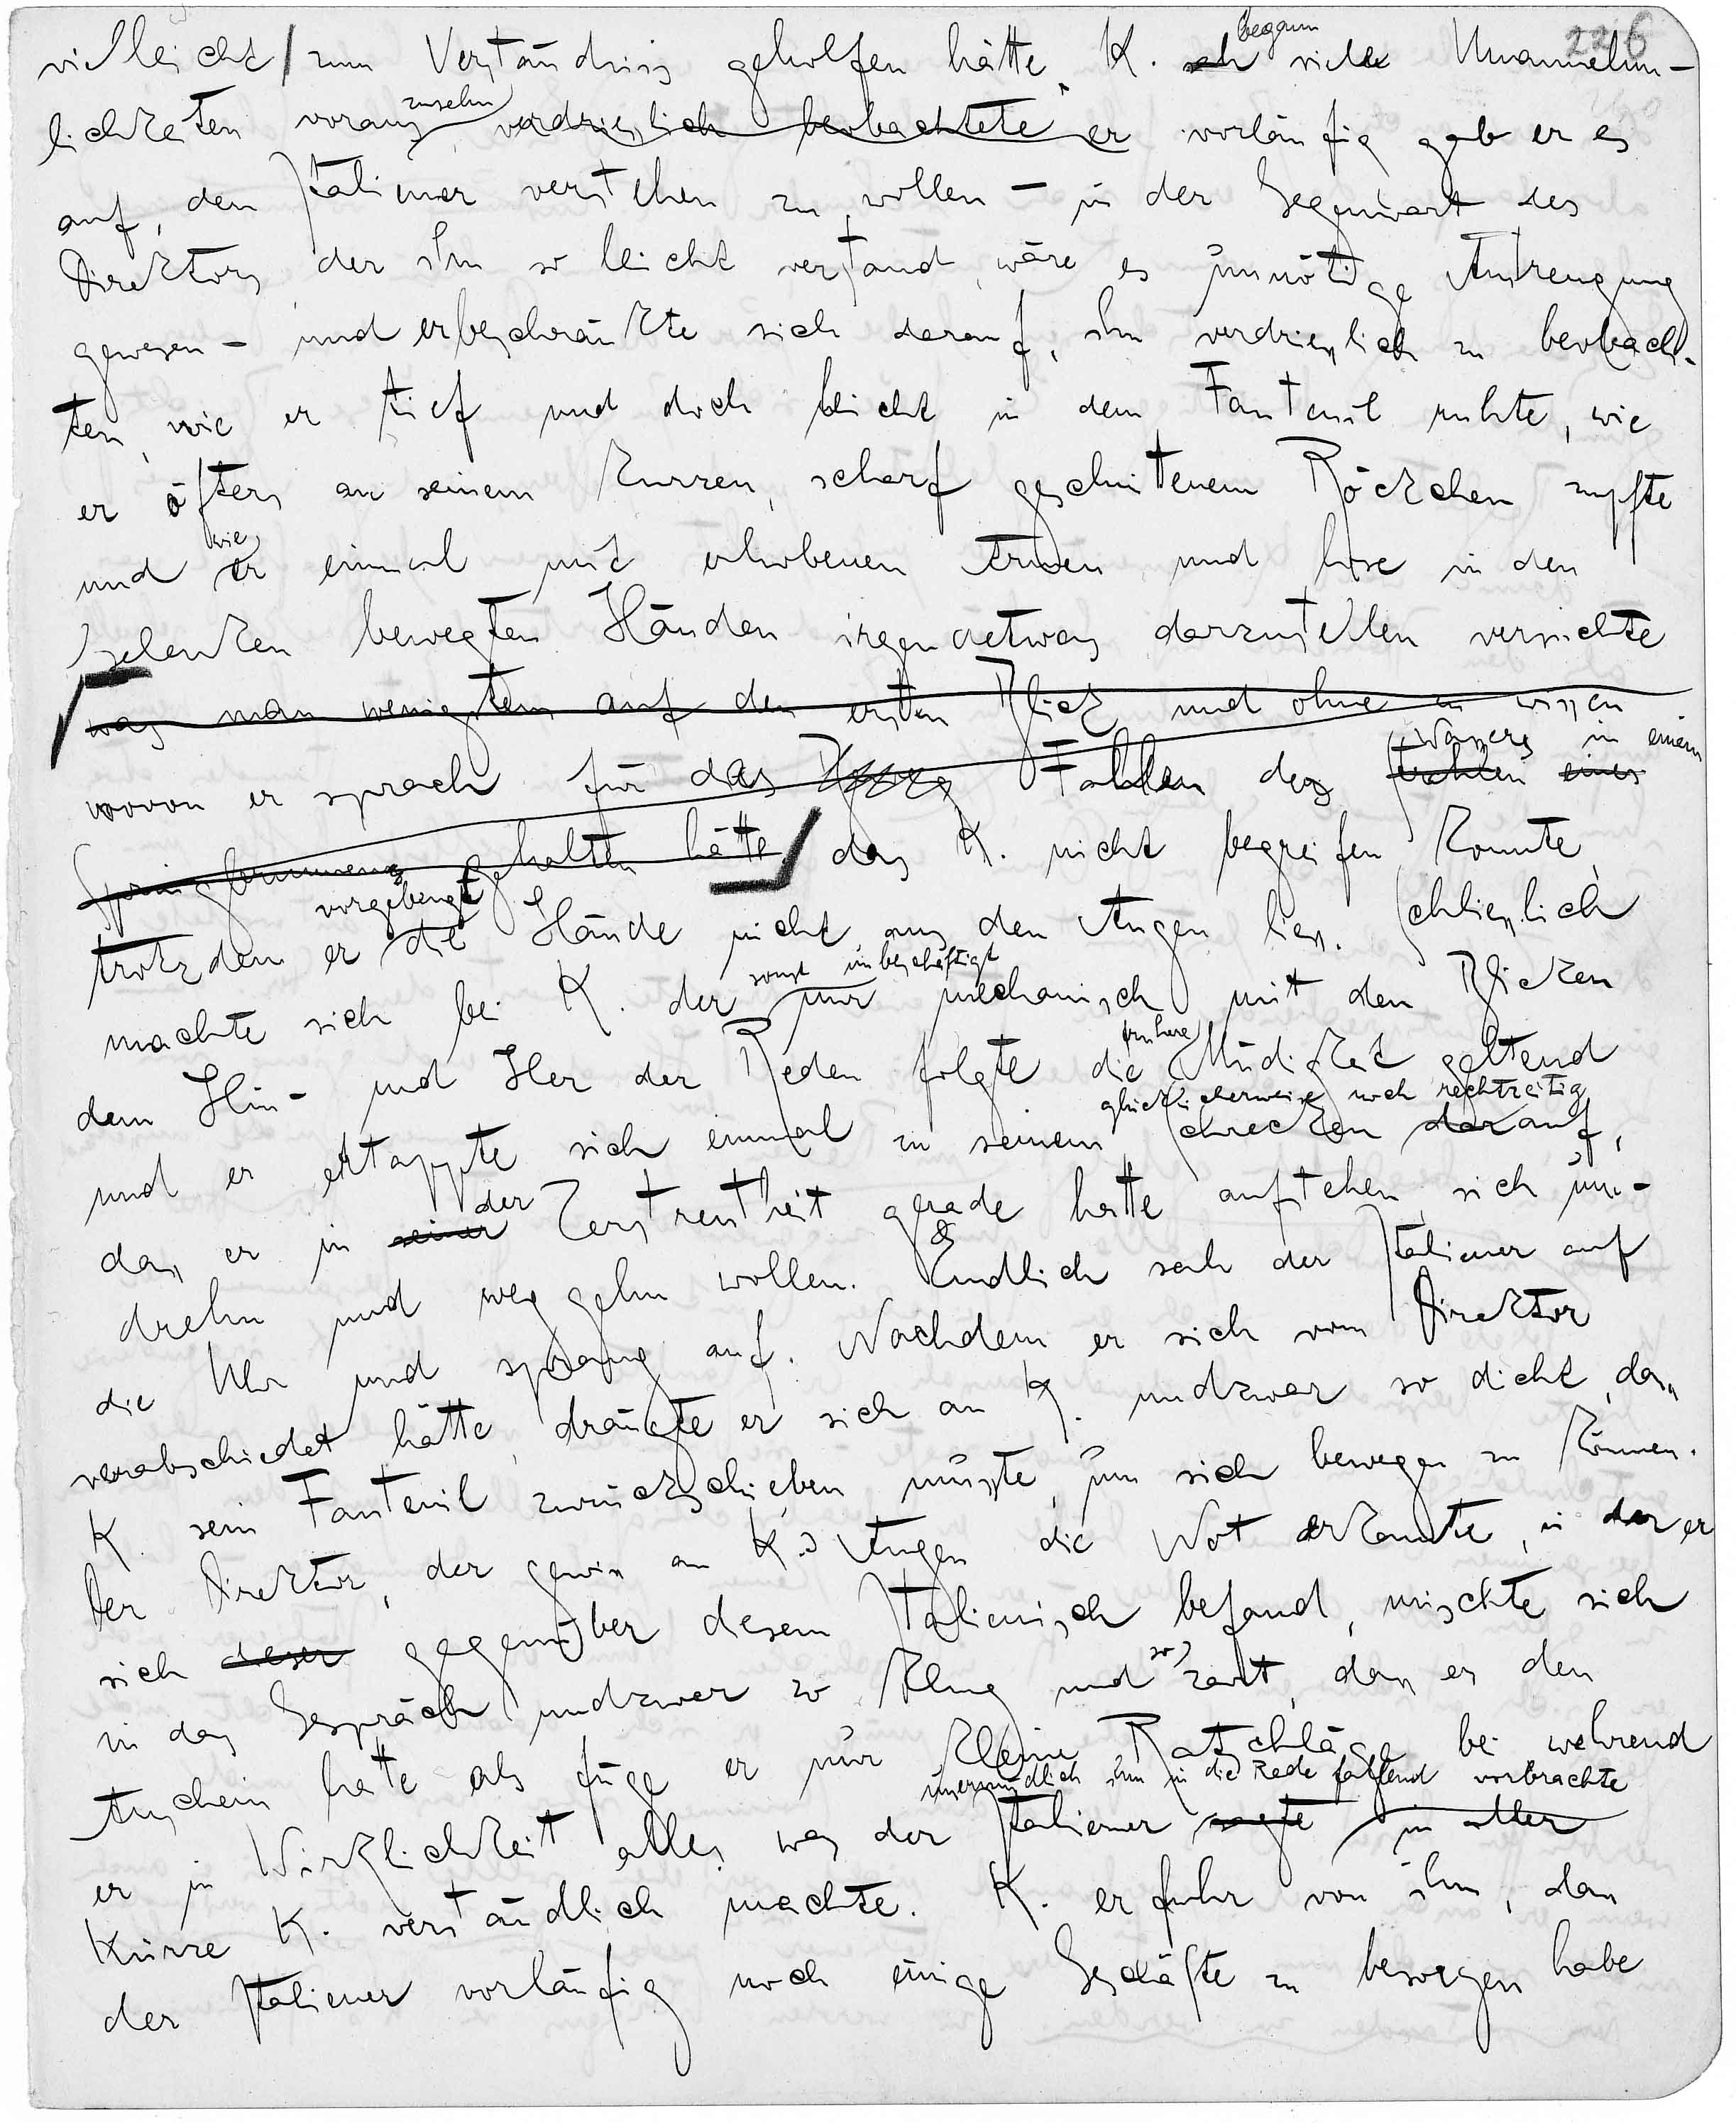 226
vielleicht / zum Verständnis geholfen hätte. K. begann viele Unannehm-
lichkeiten vorauszusehn verdriesslich beobachtete er vorläufig gab er es
auf, den Italiener verstehen zu wollen – in der Gegenwart des
Direktors der ihn so leicht verstand, wäre es unnötige Anstrengung
gewesen – und er beschränkte sich darauf, ihn verdriesslich zu beobach-
ten, wie er tief und doch leicht in dem Fauteuil ruhte, wie
er öfters an seinem kurzen, scharf geschnittenem Röckchen zupfte
und wie er einmal mit erhobenen Armen und lose in den
Gelenken bewegten Händen irgendetwas darzustellen versuchte
was man wenigstens auf den ersten Blick und ohne zu wissen
wovon er sprach für das Fallen des Wassers in einem fallen eines
Springbrunnens gehalten hätte, das K. nicht begreifen konnte,
trotzdem er vorgebeugt die Hände nicht aus den Augen liess. Schliesslich
machte sich bei K. der sonst unbeschäftigt nur mechanisch mit den Blicken
dem Hin- und Her der Reden folgte die frühere Müdigkeit geltend
und er ertappte sich einmal zu seinem Schrecken glücklicherweise noch rechtzeitig darauf,
dass er in seiner der Zerstreutheit gerade hatte aufstehen, sich um-
drehn und weggehn wollen. Endlich sah der Italiener auf
die Uhr und sprang auf. Nachdem er sich vom Direktor
verabschiedet hatte, drängte er sich an K. undzwar so dicht, dass
K. sein Fauteuil zurückschieben musste, um sich bewegen zu können.
Der Direktor, der gewiss an K.s Augen die Not erkannte, in der er
sich dieser gegenüber diesem Italienisch befand, mischte sich
in das Gespräch undzwar so klug und so zart, dass es den
Anschein hatte als füge er nur kleine Ratschläge bei während
er in Wirklichkeit alles was der Italiener unermüdlich ihm in die Rede fallend vorbrachte sagte in aller
Kürze K. verständlich machte. K. erfuhr von ihm, dass
der Italiener vorläufig noch einige Geschäfte zu besorgen habe